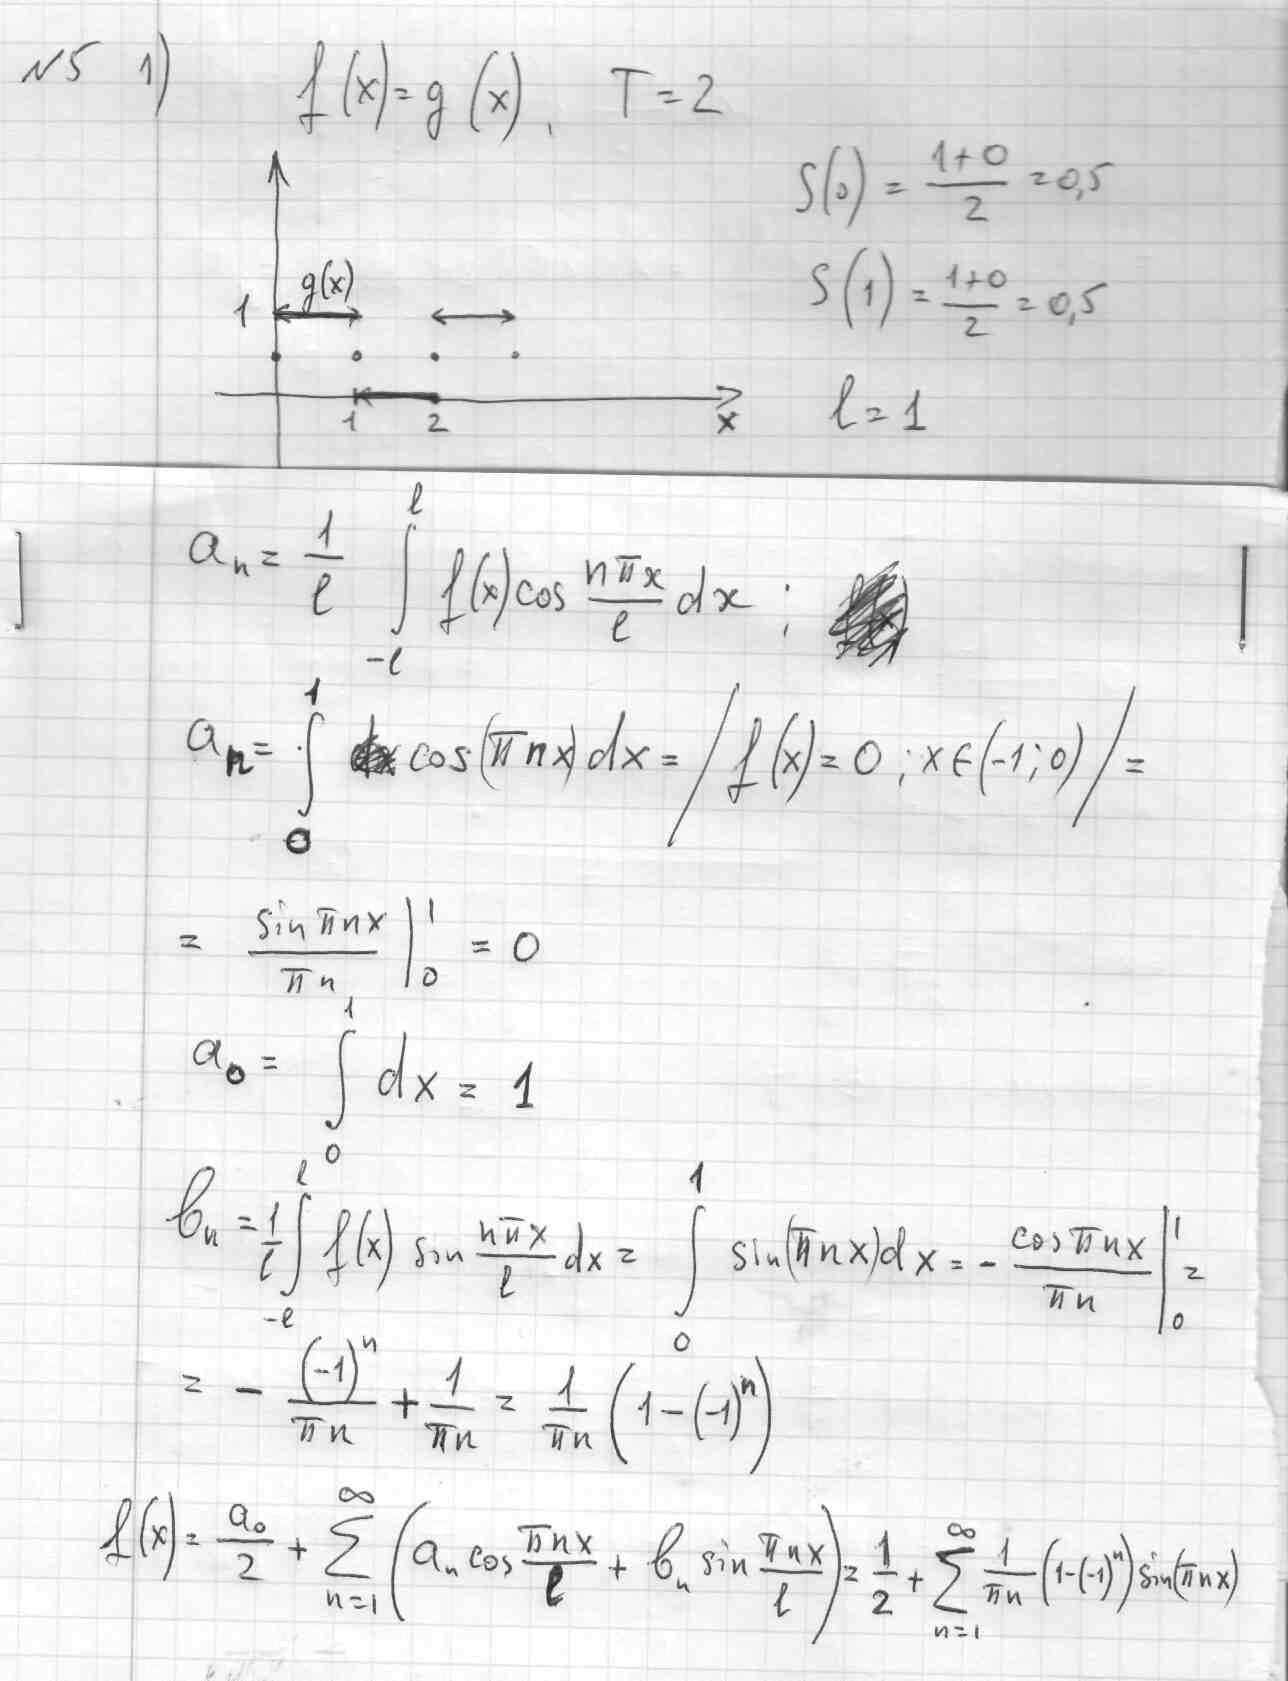 N5 1) f(x)=g(x), T=2
S(0) = (1+0)/2 = 0,5
g(x)
1
S(1) = (1+0)/2 = 0,5
1 2 x
l=1
a_n = 1/l ∫_{-l}^{l} f(x) cos (nπx/l) dx ;
a_n = ∫_0^1 cos(πnx)dx = / f(x)=0 ; x∈(-1;0) / =
= (sin πnx)/(πn) |_0^1 = 0
a_0 = ∫_0^1 dx = 1
b_n = 1/l ∫_{-l}^{l} f(x) sin (nπx/l) dx = ∫_0^1 sin(πnx)dx = - (cos πnx)/(πn) |_0^1 =
= - (-1)^n/(πn) + 1/(πn) = 1/(πn) (1-(-1)^n)
f(x) = a_0/2 + ∑_{n=1}^∞ (a_n cos (πnx/l) + b_n sin (πnx/l)) = 1/2 + ∑_{n=1}^∞ 1/(πn) (1-(-1)^n) sin(πnx)